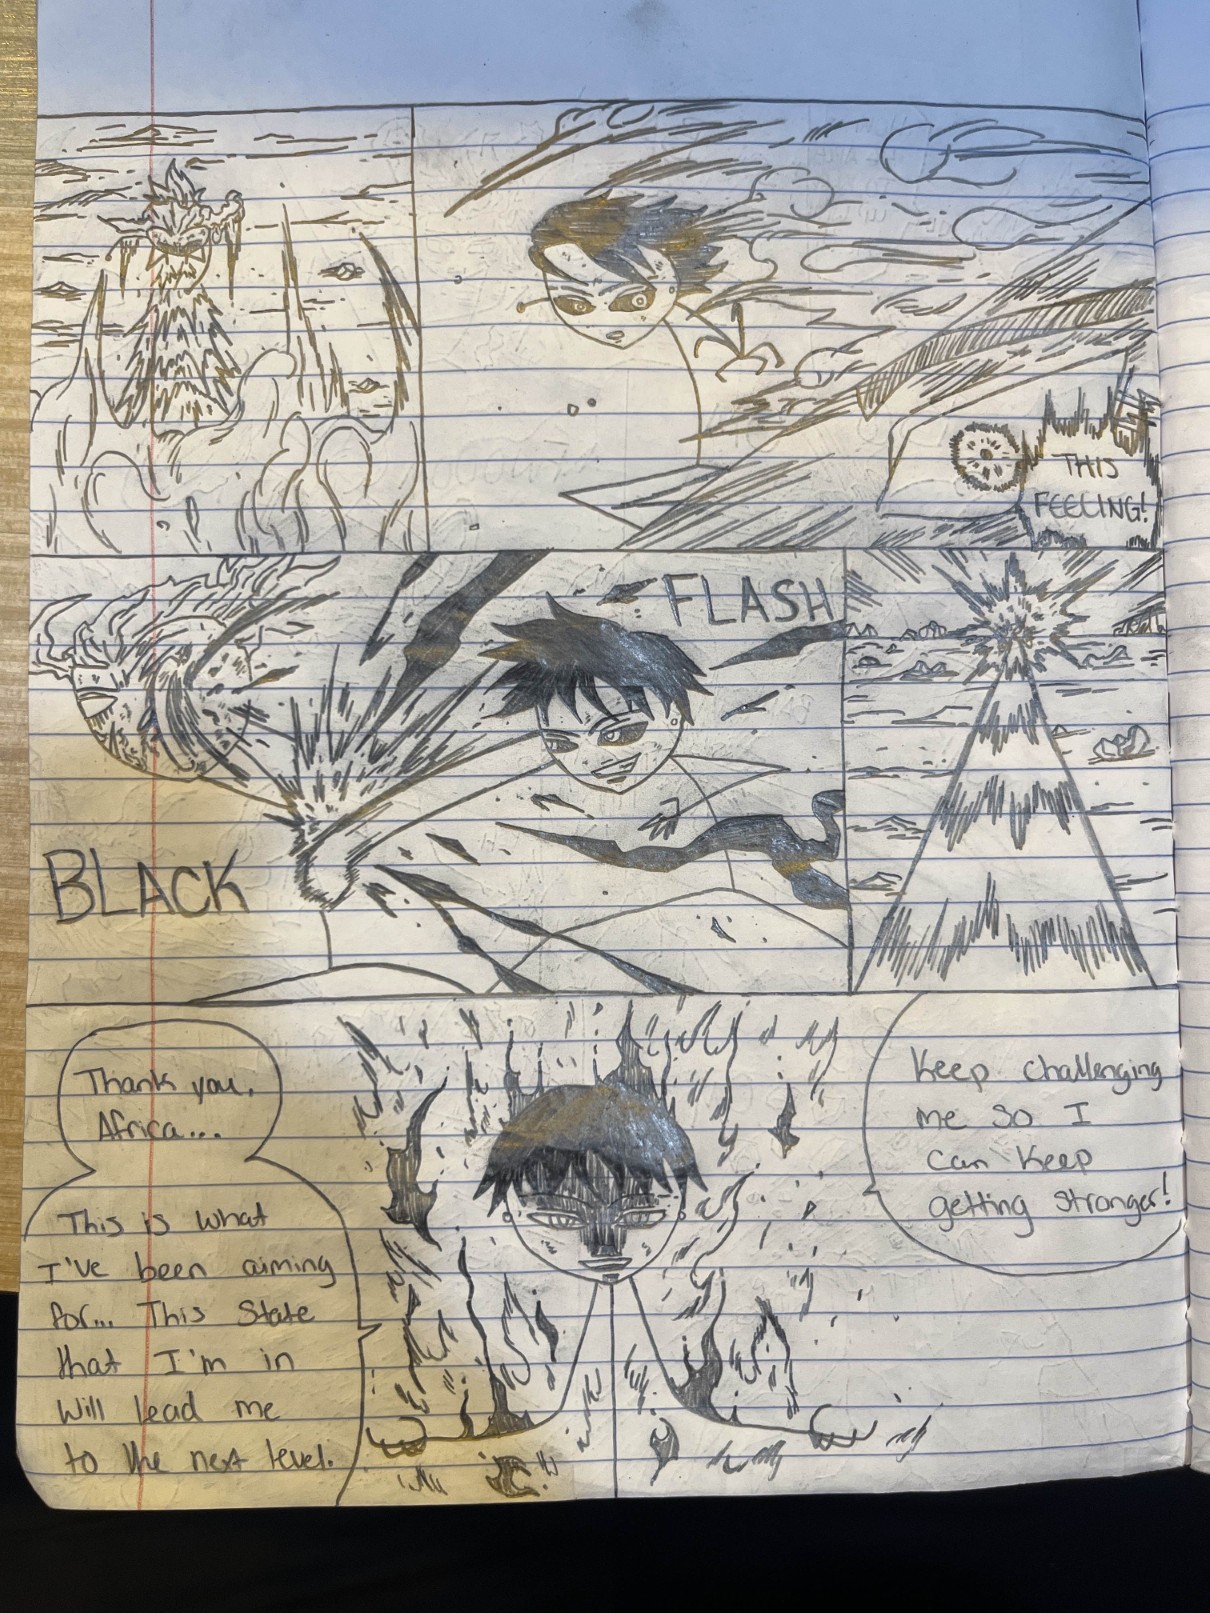 THIS
FEELING!
BLACK
FLASH
Thank you,
Africa...
This is what
I've been aiming
for... This State
that I'm in
Will lead me
to the next level.
Keep challenging
me so I
can keep
getting stronger!